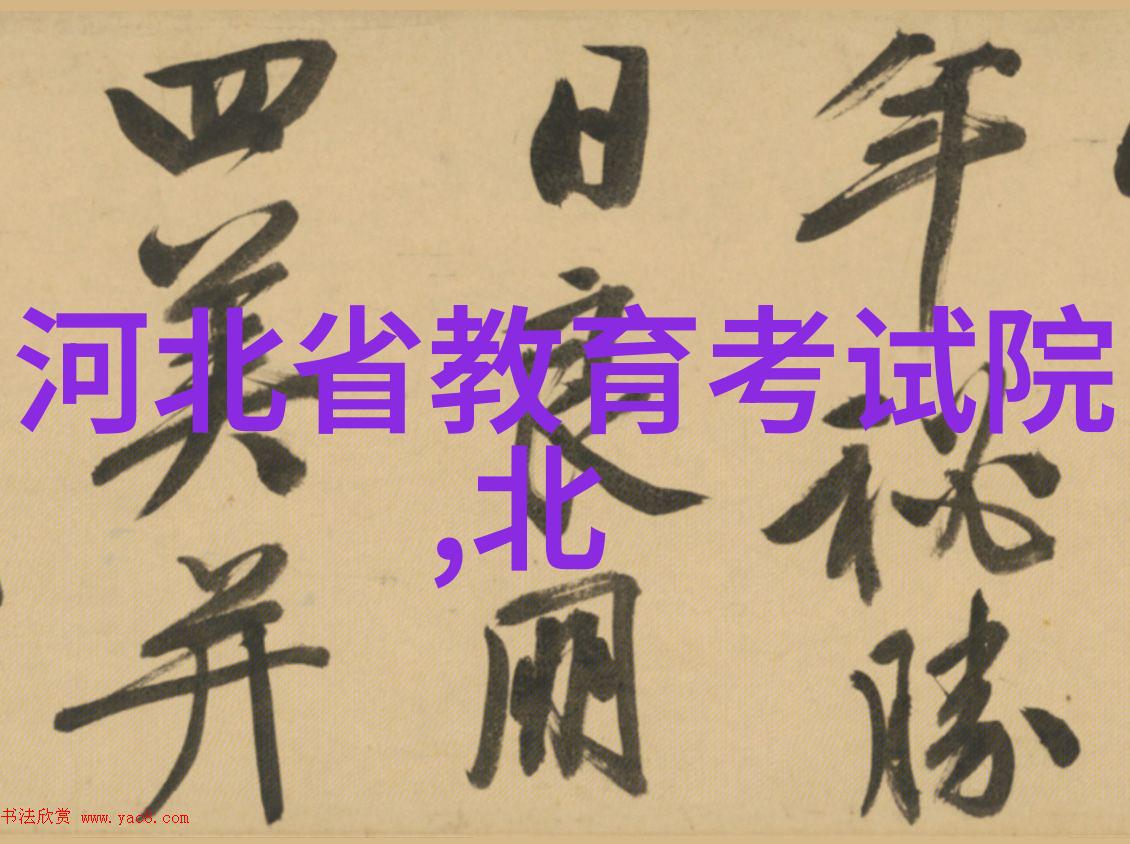 年秘勝
日良朋
四美并
河北省教育考试院
,北
书法欣赏 www.yac8.com